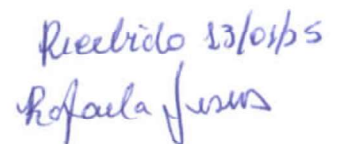 Recebido 13/01/25
Rafaela Jesus